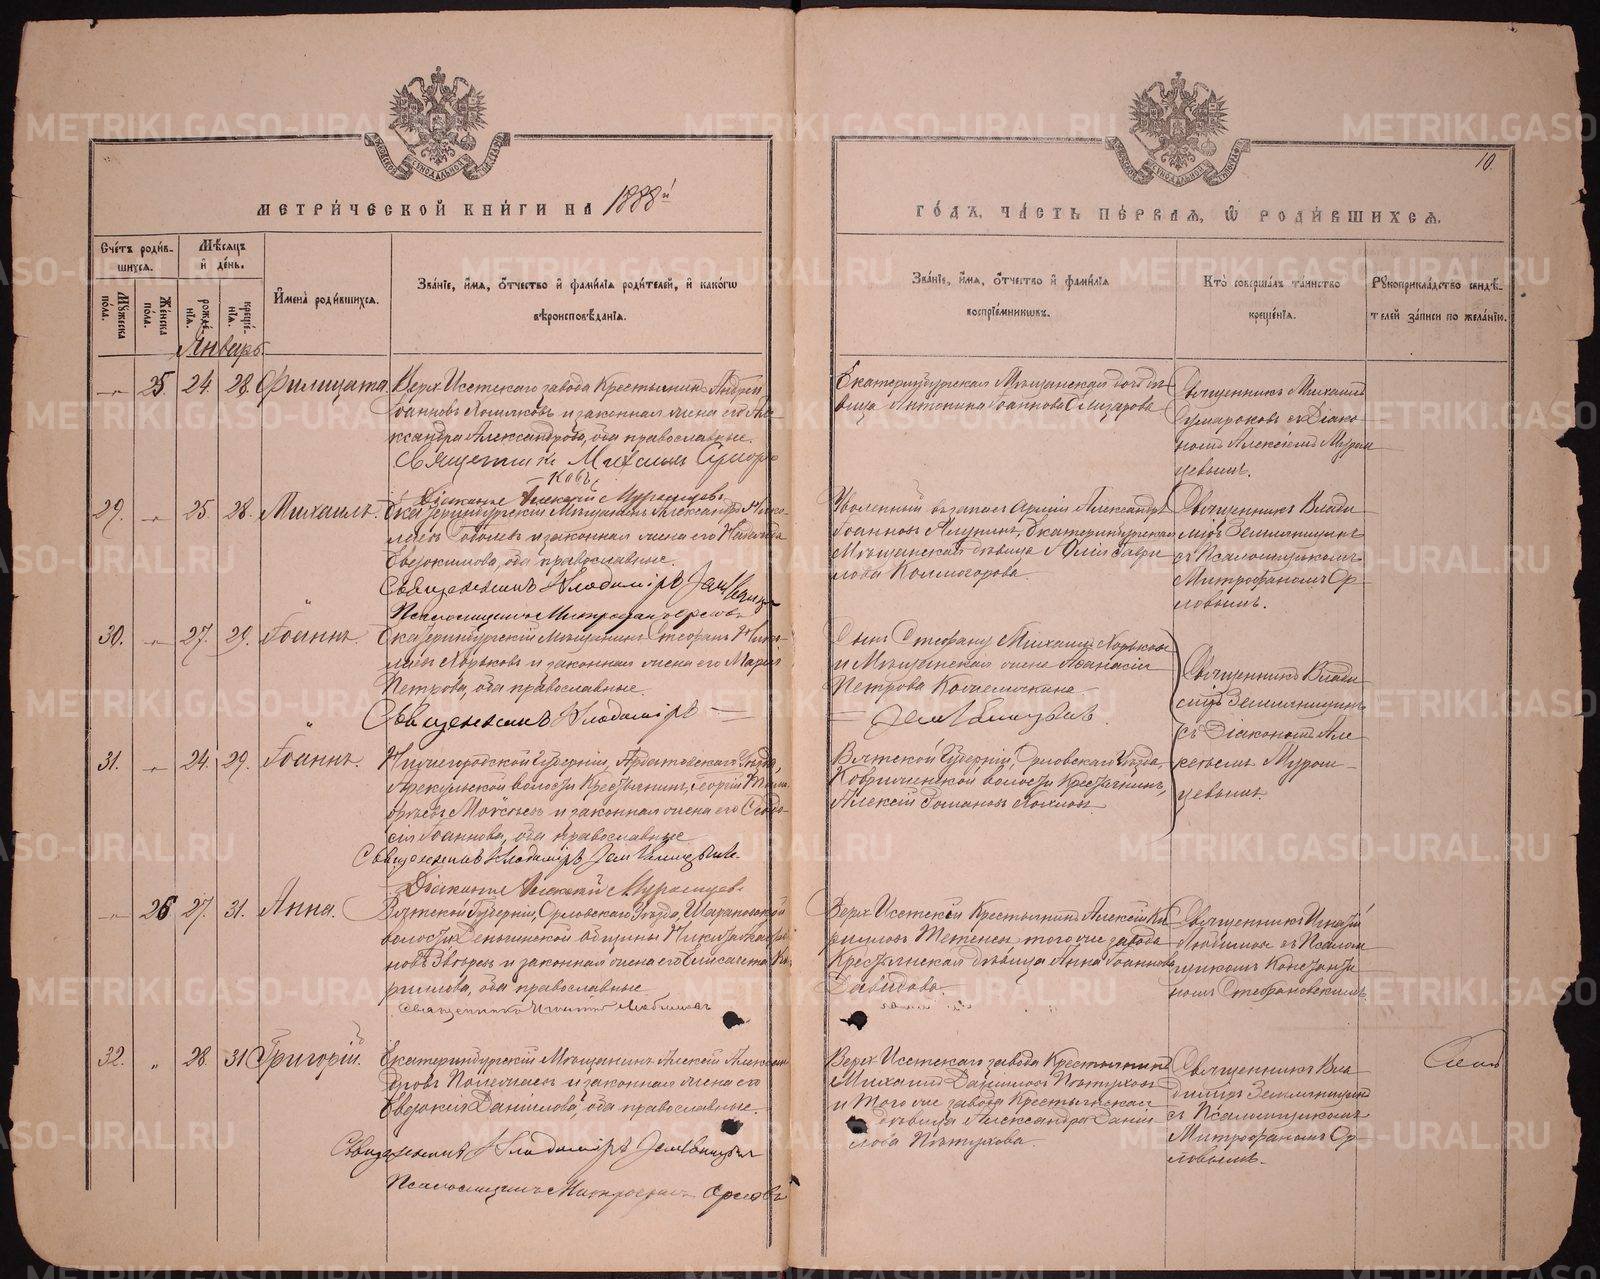 МЕТРИ́ЧЕСКОЙ КНИ́ГИ НА 1888й
ГО́ДЪ, ЧА́СТЬ ПЕ́РВАЯ, Ѡ РОДИ́ВШИХСЯ.
10.
Сче́тъ роди́в-
шихся.
Мѣ́сяцъ
и де́нь.
Мужеска
по́ла.
Же́нска
по́ла.
рожде́-
нія.
креще́-
нія.
И҆мена̀ роди́вшихся.
Зва́ніе, и҆́мя, ѻ҆́тчество и҆ фами́лія роди́телей, и҆ како́гѡ
вѣроисповѣ́данія.
Зва́ніе, и҆́мя, ѻ҆́тчество и҆ фами́лія
воспріе́мниковъ.
Кто̀ соверша́лъ та́инство
креще́нія.
Рукоприкла́дство свидѣ́-
телей за́писи по жела́нію.
Январь
25. 24. 28. Филицата
Верх Исетскаго завода Крестьянинъ Андрей
Іоанновъ и законная жена его Але-
ксандра Александрова, оба православные.
Священник Михаилъ Сумаро-
ковъ,
Діаконъ Алексій Муромцевъ
Екатеринбургская Мѣщанская дочь дѣ-
вица Антонина Іоаннова Елизарова
Священникъ Михаилъ
Сумароковъ съ Діако-
номъ Алексіемъ Муром-
цевымъ.
29. 25. 28. Михаилъ.
Екатеринбургскій Мѣщанинъ Александръ Нико-
лаевъ и законная жена его Надежда
Евдокимова, оба православные.
Священникъ Владиміръ Земляницынъ
Псаломщикъ Митрофанъ Орловъ
Уволенный въ запасъ Арміи Александръ
Іоанновъ Екатеринбургская
Мѣщанская дѣвица Юлія Гаври-
лова Колмогорова.
Священникъ Влади-
міръ Земляницынъ
съ Псаломщикомъ
Митрофаномъ Ор-
ловымъ.
30. 27. 29. Іоаннъ.
Екатеринбургскій Мѣщанинъ Стефанъ Нико-
лаевъ Хорьковъ и законная жена его Марія
Петрова, оба православные.
Священникъ Владиміръ
Сынъ Стефану Михаилъ Хорьковъ
и Мѣщанская жена Аѳанасія
Петрова
Земляницынъ.
Священникъ Влади-
міръ Земляницынъ
съ Діакономъ Але-
ксѣемъ Муром-
цевымъ.
31. 24. 29. Іоаннъ.
Нижегородской Губерніи, Ардатовскаго Уѣзда,
волости Крестьянинъ, Георгій
и законная жена его Ѳеодо-
сія Іоаннова, оба православные
Священникъ Владиміръ Земляницынъ
Діаконъ Алексій Муромцевъ
Вятской Губерніи, Орловскаго Уѣзда,
волости Крестьянинъ,
Алексій Романовъ
26 27. 31. Анна.
Вятской Губерніи, Орловскаго Уѣзда, Шараповской
волости общины Никита
и законная жена его Елисавета Ки-
риллова, оба православные
Священникъ Игнатій Любимовъ
Верх Исетскій Крестьянинъ Алексій Ки-
рилловъ того же завода
Крестьянская дѣвица Анна Іоаннова
Давыдова.
Священникъ Игнатій
Любимовъ съ Псалом-
щикомъ Константи-
номъ Стефановскимъ.
32. 28. 31. Григорій.
Екатеринбургскій Мѣщанинъ Алексій Алексан-
дровъ и законная жена его
Евдокія Даниилова оба православные.
Священникъ Владиміръ Земляницынъ
Псаломщикъ Митрофанъ Орловъ
Верх Исетскаго завода Крестьянинъ
Михаилъ Данииловъ Пѣтуховъ
и того же завода Крестьянская
дѣвица Александра Даніи-
лова Пѣтухова.
Священникъ Вла-
диміръ Земляницынъ
съ Псаломщикомъ
Митрофаномъ Ор-
ловымъ.
METRIKI.GASO-URAL.RU